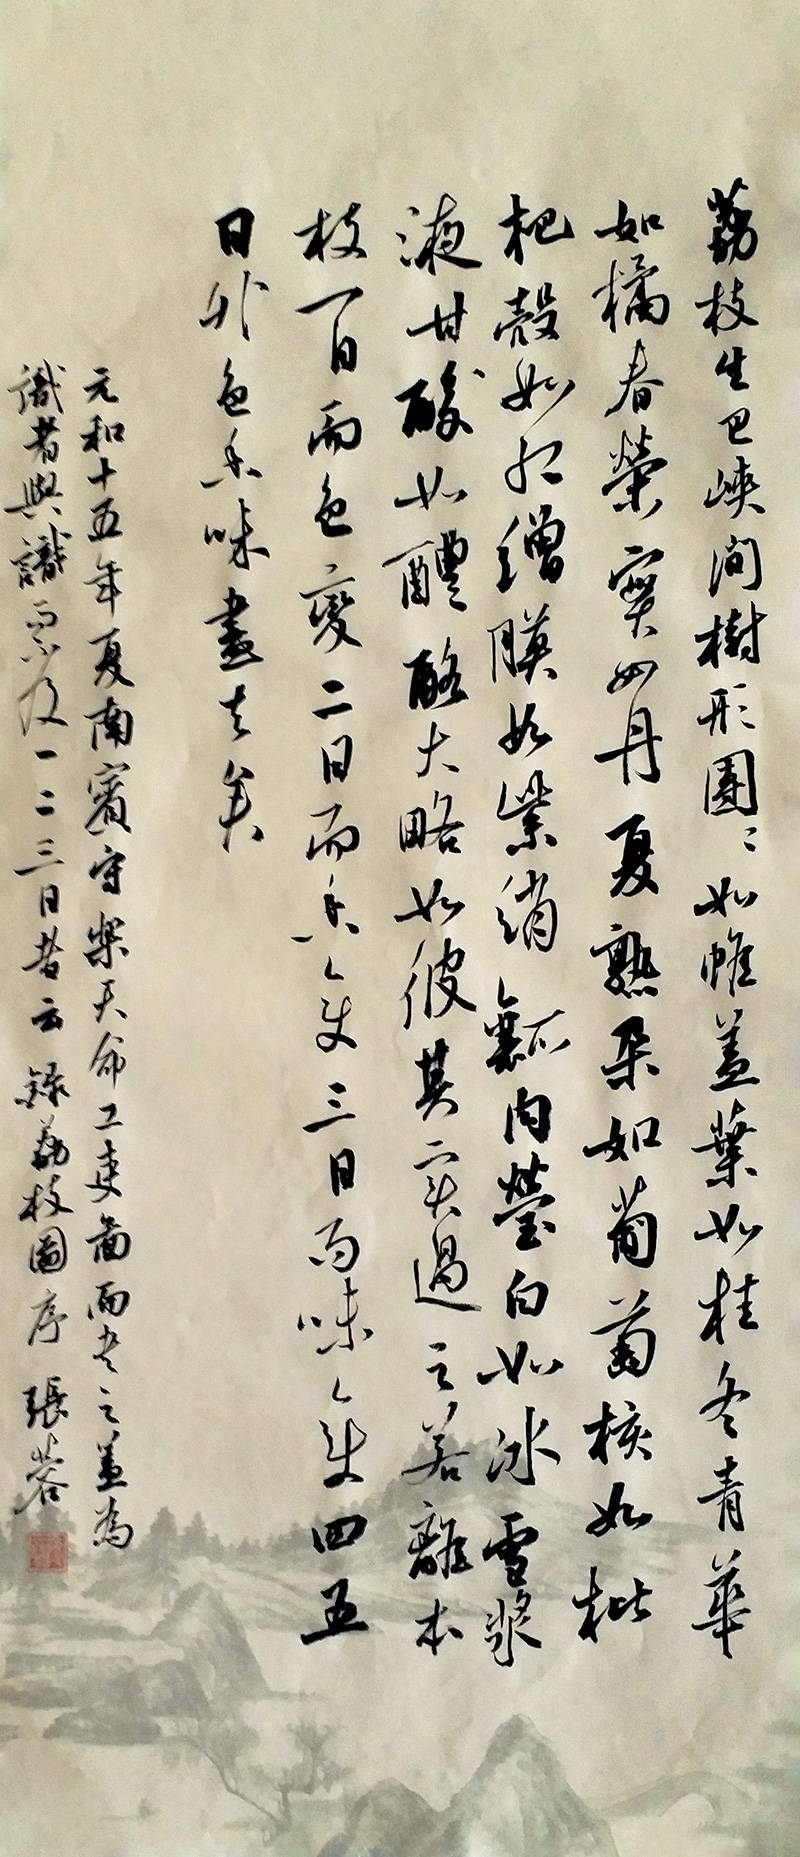 荔枝生巴峽間樹形團ミ如帷蓋葉如桂冬青華
如橘春榮實如丹夏熟朵如葡萄核如枇
杷殼如紅繒膜如紫綃瓤肉瑩白如冰雪漿
液甘酸如醴酪大略如彼其實過之若離本
枝一日而色變二日而香變三日而味變四五
日外色香味盡去矣
元和十五年夏南賓守樂天命工吏圖而書之蓋為
識者與識而不及一二三日者云 錄荔枝圖序 張蓉